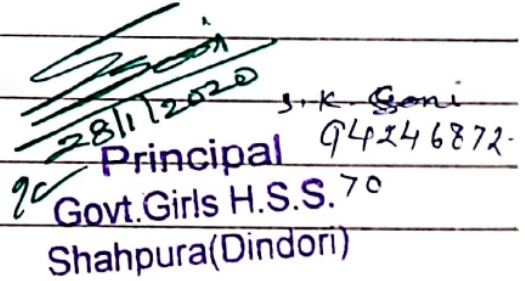 Soni
28/1/2020
S. K. Soni
94246872-
70
Principal
Govt.Girls H.S.S.
Shahpura(Dindori)